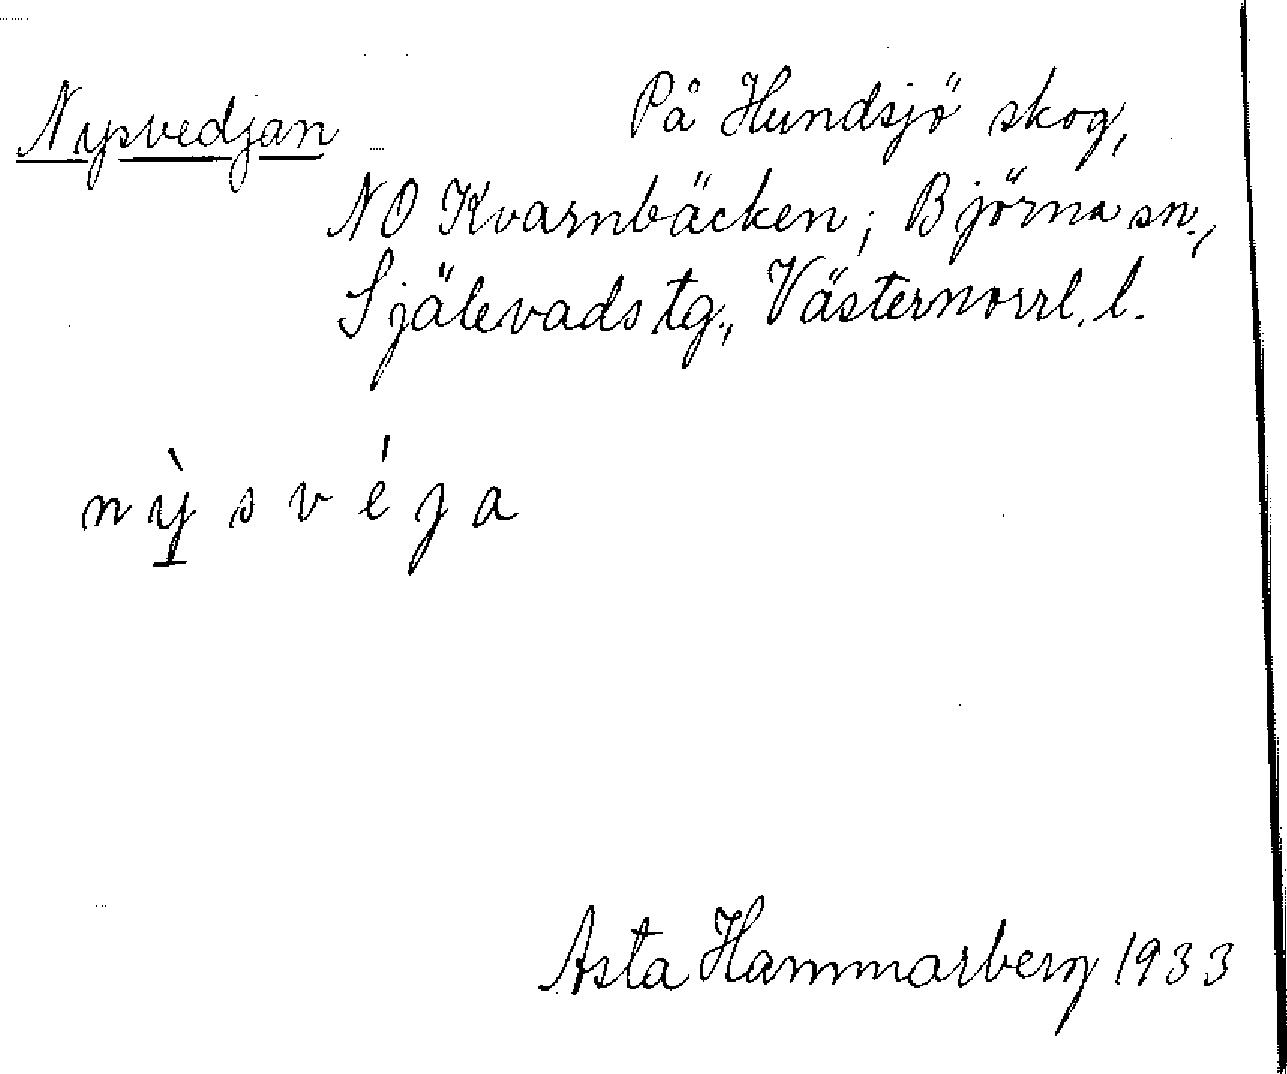 Nysvedjan På Hundsjö skog,
NO Kvarnbäcken; Björna sn.,
Själevads tg., Västernorrl. l.
nỳ̱ s v é j a
Asta Hammarberg 1933